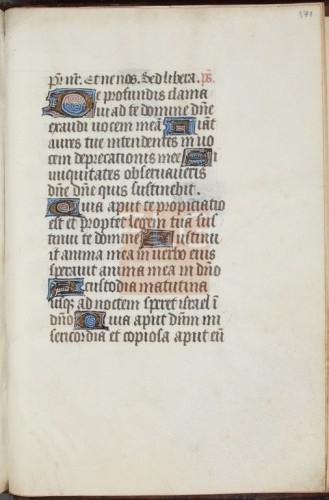 171
pr̄ nr̄. Et ne nos. Sed libera. p̄s.
De profundis clama
ui ad te domine dn̄e
exaudi uocem meā Fiāt
aures tue intendentes in uo
cem deprecationis mee Si
iniquitates obseruaueris
dn̄e dn̄e quis sustinebit.
Quia aput te propiciatio
est et propter legem tuā sus
tinui te domine Sustinu
it anima mea in uerbo eius
sperauit anima mea in dn̄o
A custodia matutina
usq; ad noctem speret israel ī
dn̄o Quia aput dn̄m mi
sericordia et copiosa aput eū